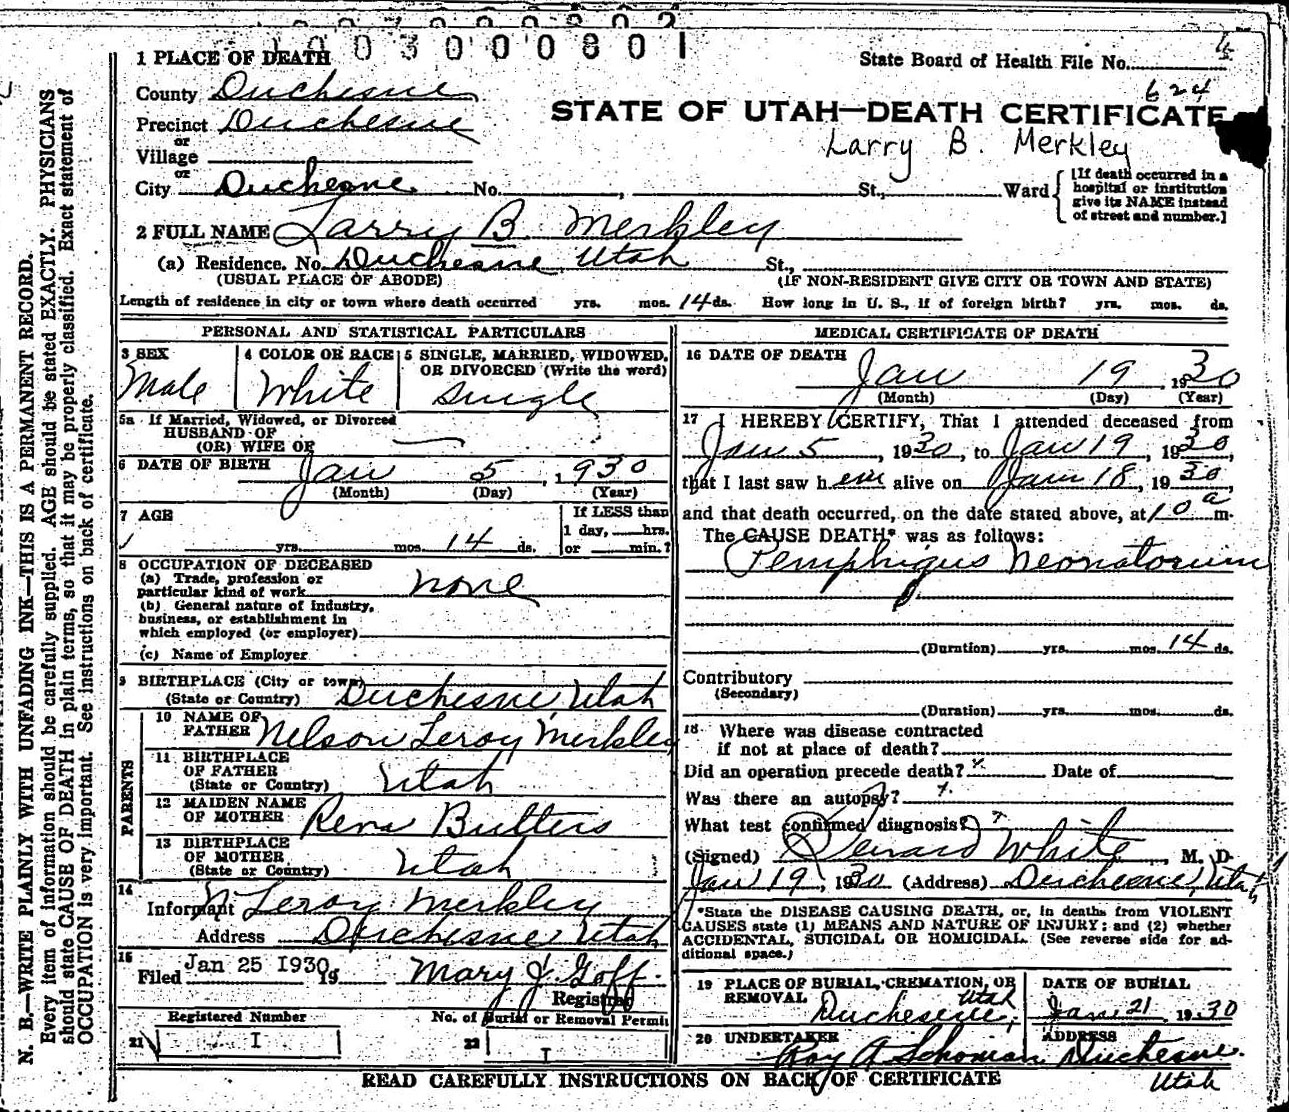 0030000801
1 PLACE OF DEATH
State Board of Health File No.
624
County Duchesne
STATE OF UTAH—DEATH CERTIFICATE
Precinct Duchesne
Larry B. Merkley
or
Village
or
City Duchesne No. , St., Ward
[If death occurred in a
hospital or institution
give its NAME instead
of street and number.]
2 FULL NAME Larry B. Merkley
(a) Residence. No. Duchesne Utah St.,
(USUAL PLACE OF ABODE) (IF NON-RESIDENT GIVE CITY OR TOWN AND STATE)
Length of residence in city or town where death occurred yrs. mos. 14 ds. How long in U. S., if of foreign birth? yrs. mos. ds.
PERSONAL AND STATISTICAL PARTICULARS
3 SEX
Male
4 COLOR OR RACE
White
5 SINGLE, MARRIED, WIDOWED,
OR DIVORCED (Write the word)
Single
5a If Married, Widowed, or Divorced
HUSBAND OF
(OR) WIFE OF
6 DATE OF BIRTH Jan 5, 1930
(Month) (Day) (Year)
7 AGE
yrs. mos. 14 ds.
If LESS than
1 day, hrs.
or min.?
8 OCCUPATION OF DECEASED
(a) Trade, profession or
particular kind of work none
(b) General nature of industry,
business, or establishment in
which employed (or employer)
(c) Name of Employer
9 BIRTHPLACE (City or town)
(State or Country) Duchesne, Utah
PARENTS
10 NAME OF
FATHER Nelson Leroy Merkley
11 BIRTHPLACE
OF FATHER
(State or Country) Utah
12 MAIDEN NAME
OF MOTHER Rena Butters
13 BIRTHPLACE
OF MOTHER
(State or Country) Utah
14
Informant N Leroy Merkley
Address Duchesne Utah
15
Filed Jan 25 1930, 19 Mary J. Goff.
Registrar
Registered Number No. of Burial or Removal Permit
21 I 22 I
MEDICAL CERTIFICATE OF DEATH
16 DATE OF DEATH
Jan 19, 1930
(Month) (Day) (Year)
17 I HEREBY CERTIFY, That I attended deceased from
Jan 5, 1930, to Jan 19, 1930,
that I last saw h em alive on Jan 18, 1930,
and that death occurred, on the date stated above, at 10 a m.
The CAUSE DEATH* was as follows:
Pemphigus Neonatorium
(Duration) yrs. mos. 14 ds.
Contributory
(Secondary)
(Duration) yrs. mos. ds.
18 Where was disease contracted
if not at place of death?
Did an operation precede death? Date of
Was there an autopsy?
What test confirmed diagnosis?
(Signed) White, M. D.
Jan 19, 1930 (Address) Duchesne, Utah
*State the DISEASE CAUSING DEATH, or, in deaths from VIOLENT
CAUSES state (1) MEANS AND NATURE OF INJURY; and (2) whether
ACCIDENTAL, SUICIDAL OR HOMICIDAL. (See reverse side for ad-
ditional space.)
19 PLACE OF BURIAL, CREMATION, OR
REMOVAL Duchesne, Utah
DATE OF BURIAL
Jan 21 1930
20 UNDERTAKER
Roy A Schonian
ADDRESS
Duchesne.
Utah
READ CAREFULLY INSTRUCTIONS ON BACK OF CERTIFICATE
N. B.—WRITE PLAINLY WITH UNFADING INK—THIS IS A PERMANENT RECORD.
Every item of information should be carefully supplied. AGE should be stated EXACTLY. PHYSICIANS
should state CAUSE OF DEATH in plain terms, so that it may be properly classified. Exact statement of
OCCUPATION is very important. See instructions on back of certificate.